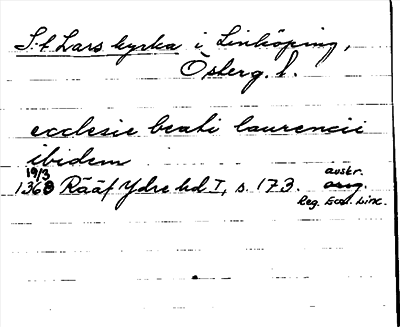 S:t Lars kyrka i Linköping,
Österg. l.
ecclesie beati laurencii
ibidem
19/3 avskr.
1368 Rääf Ydre hd I, s. 173. orig.
Reg. Eccl. Linc.